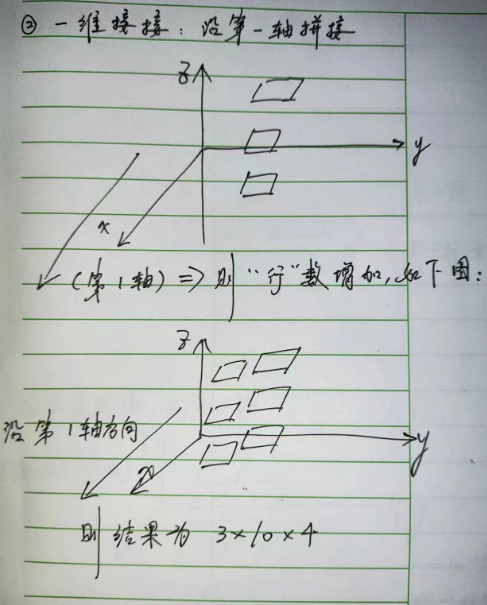 ② 一维接接：沿第一轴拼接
z
y
x
(第1轴) => 则"行"数增加，如下图：
z
沿第1轴方向
y
则结果为 3×10×4